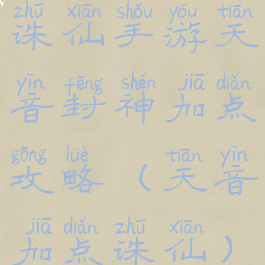 zhū xiān shǒu yóu tiān
诛仙手游天
yīn fēng shén jiā diǎn
音封神加点
gōng lüè tiān yīn
攻略（天音
jiā diǎn zhū xiān
加点诛仙）